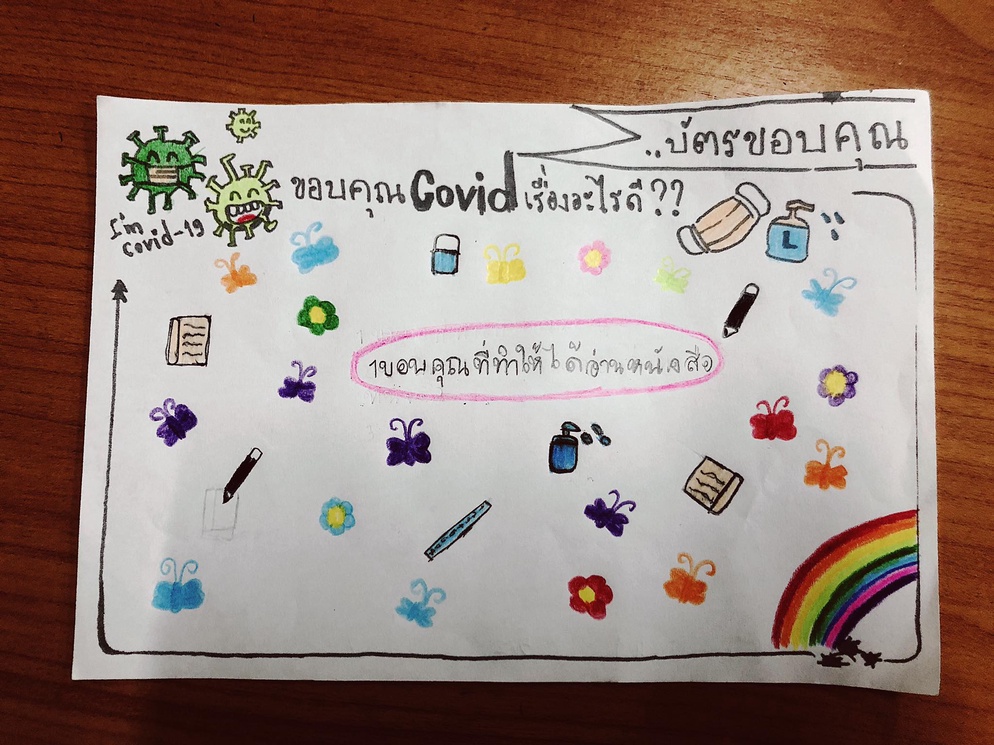 ..บัตรขอบคุณ
ขอบคุณ Covid เรื่องอะไรดี??
I'm
covid-19
L
1ขอบคุณที่ทำให้ได้อ่านหนังสือ